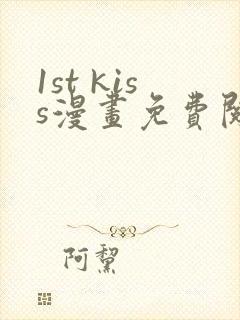 1st kis
s漫畫免費
阿黧